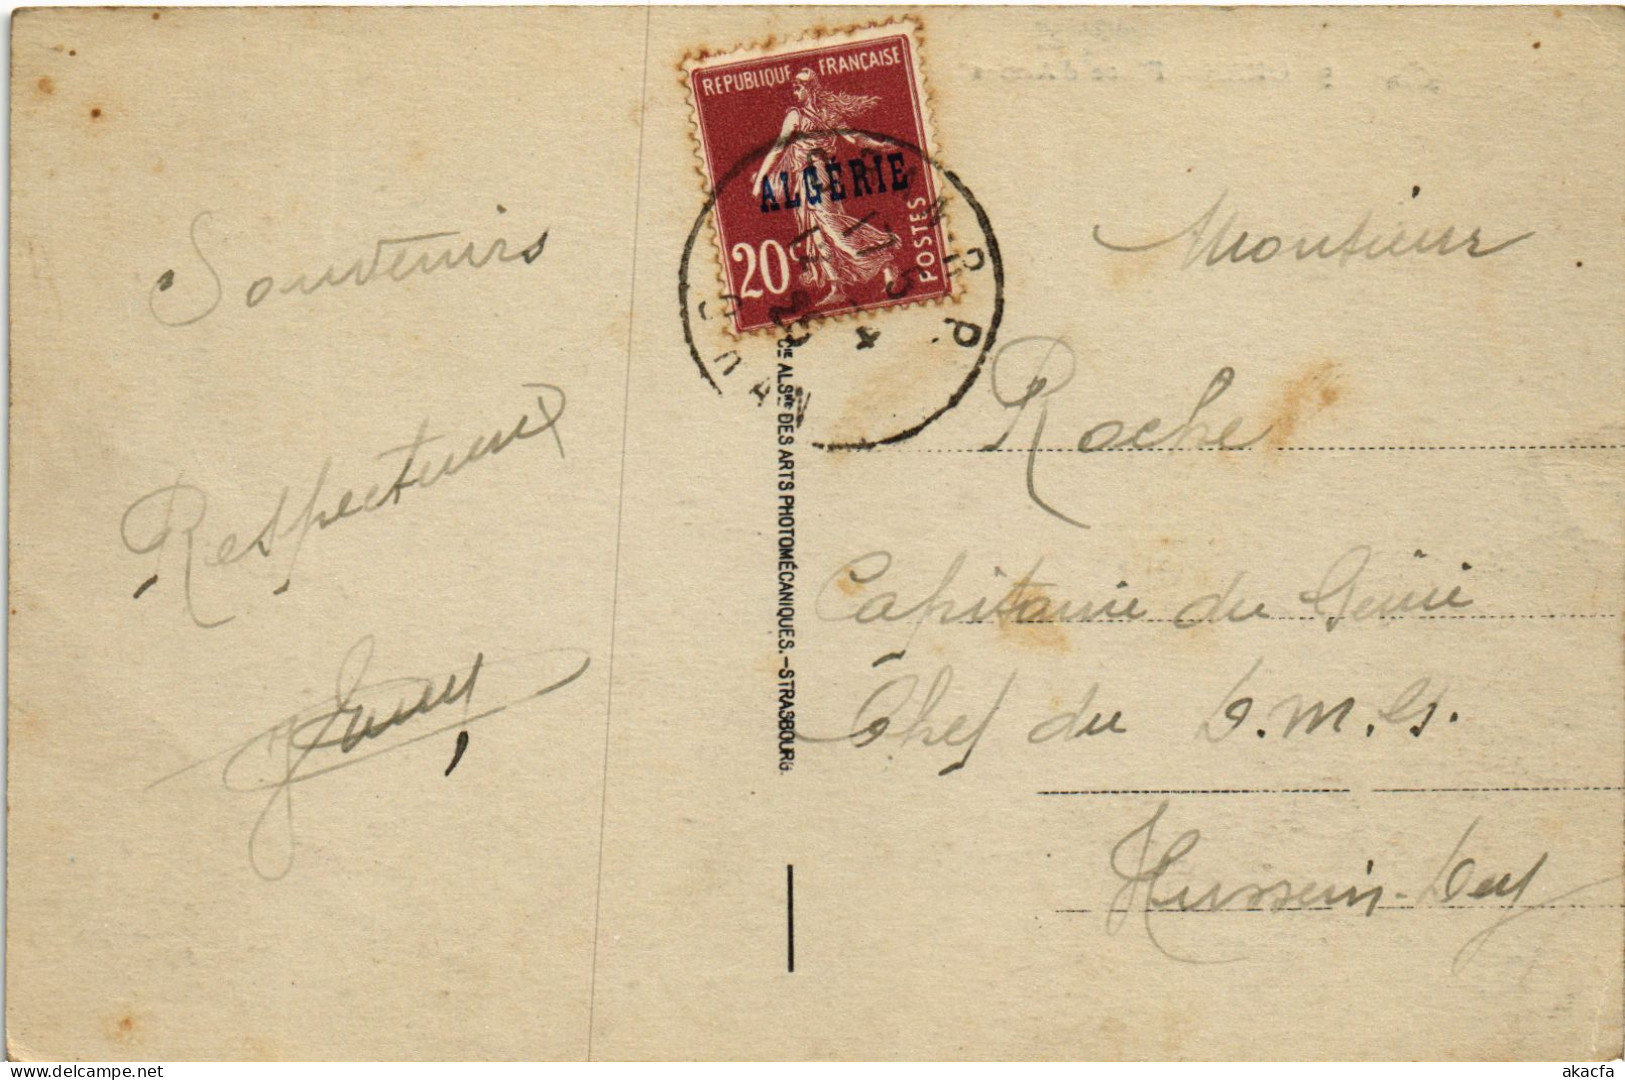 REPUBLIQUE FRANÇAISE
ALGÉRIE
20c
POSTES
Souvenirs
Respectueux
Cie ALSne DES ARTS PHOTOMÉCANIQUES.-STRASBOURG.
Monsieur
Roche
Capitaine du Génie
Chef du D.M.G.
Hussein-Dey
akacfa